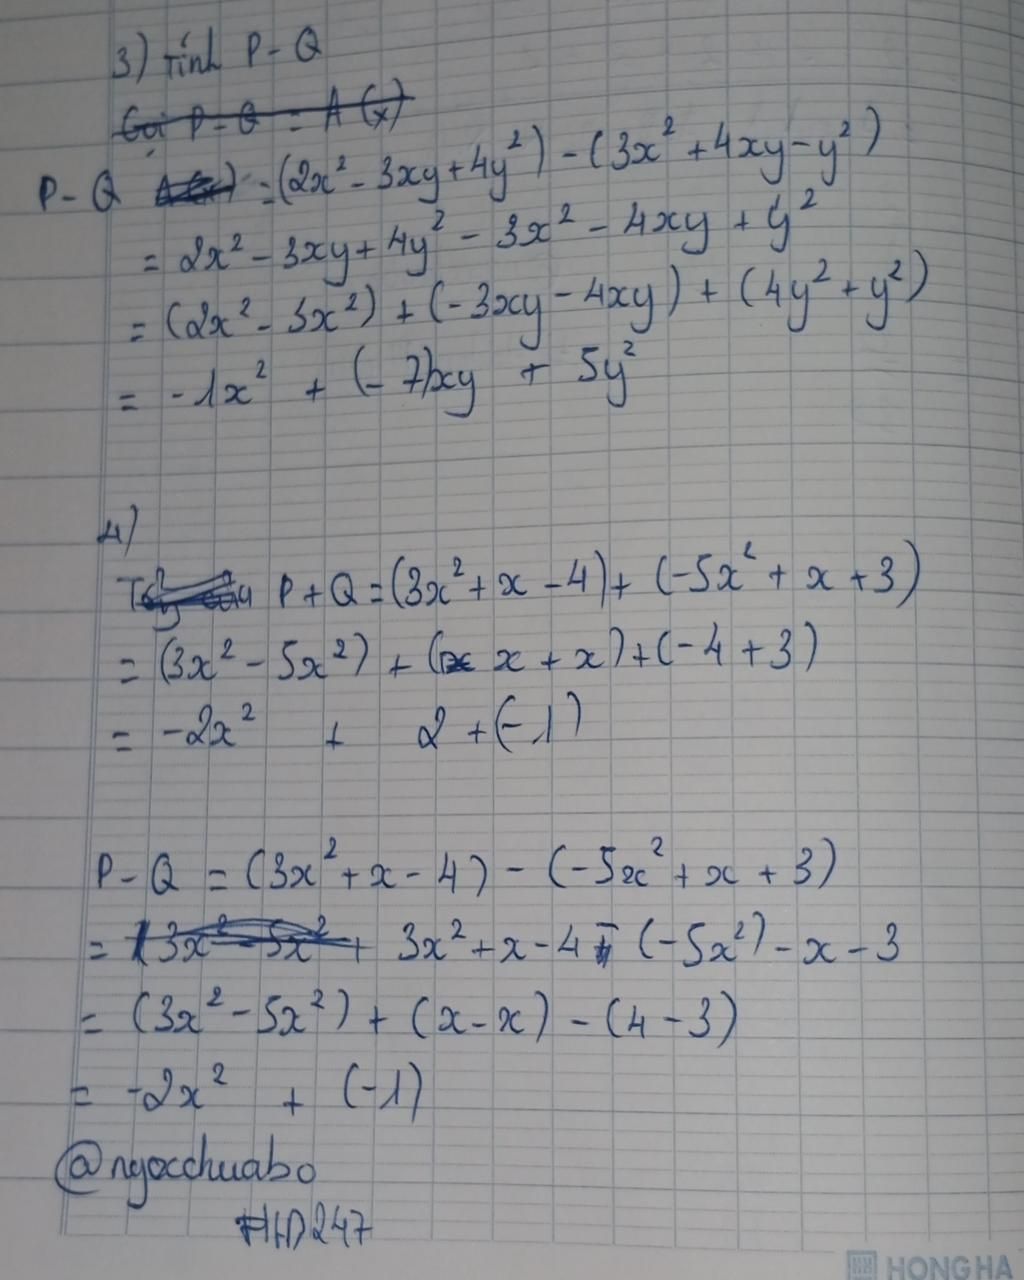 3) Tính P - Q
Gọi P - Q = A(x)
P - Q = (2x² - 3xy + 4y²) - (3x² + 4xy - y²)
= 2x² - 3xy + 4y² - 3x² - 4xy + y²
= (2x² - 3x²) + (-3xy - 4xy) + (4y² + y²)
= -1x² + (-7)xy + 5y²
4)
P + Q = (3x² + x - 4) + (-5x² + x + 3)
= (3x² - 5x²) + (x + x) + (-4 + 3)
= -2x² + 2 + (-1)
P - Q = (3x² + x - 4) - (-5x² + x + 3)
= (3x² - 5x² + 3x² + x - 4 - (-5x²) - x - 3
= (3x² - 5x²) + (x - x) - (4 - 3)
= -2x² + (-1)
@ngocchuabo
#HD247
HONG HA